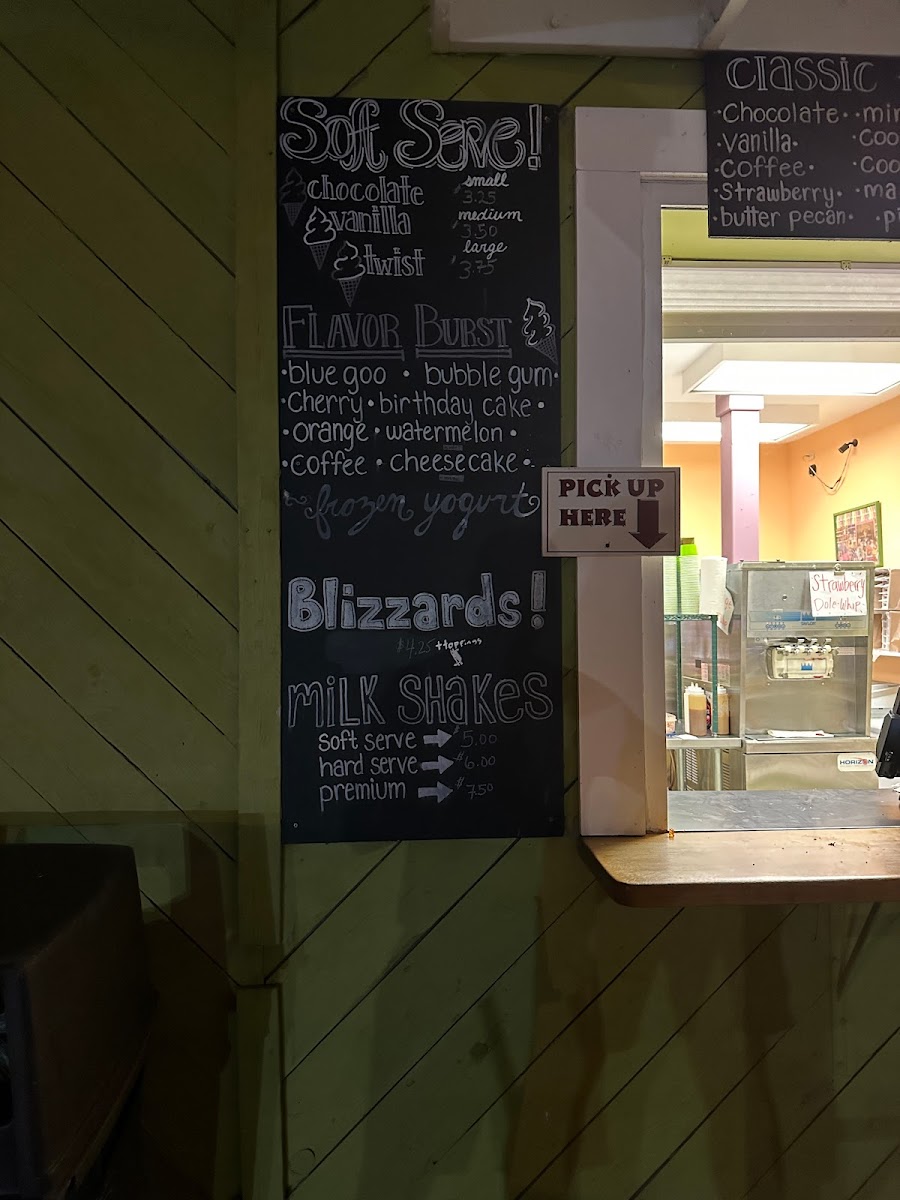 Soft Serve!
chocolate
vanilla
twist
small
3.25
medium
3.50
large
3.75
FLAVOR BURST
•blue goo • bubble gum•
•Cherry•birthday cake•
•orange•watermelon•
•coffee•cheesecake•
frozen yogurt
Blizzards!
$4.25 +toppings
MiLK SHakes
soft serve → 5.00
hard serve → $6.00
premium → $7.50
PICK UP
HERE
Classic
•Chocolate•
•vanilla•
•coffee•
•Strawberry•
•butter pecan•
Strawberry
Dole-Whip
HORIZON